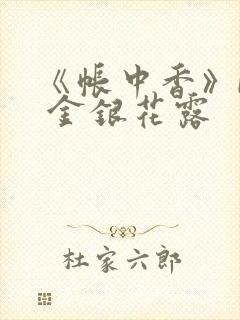 《帐中香》
金银花露
杜家六郎